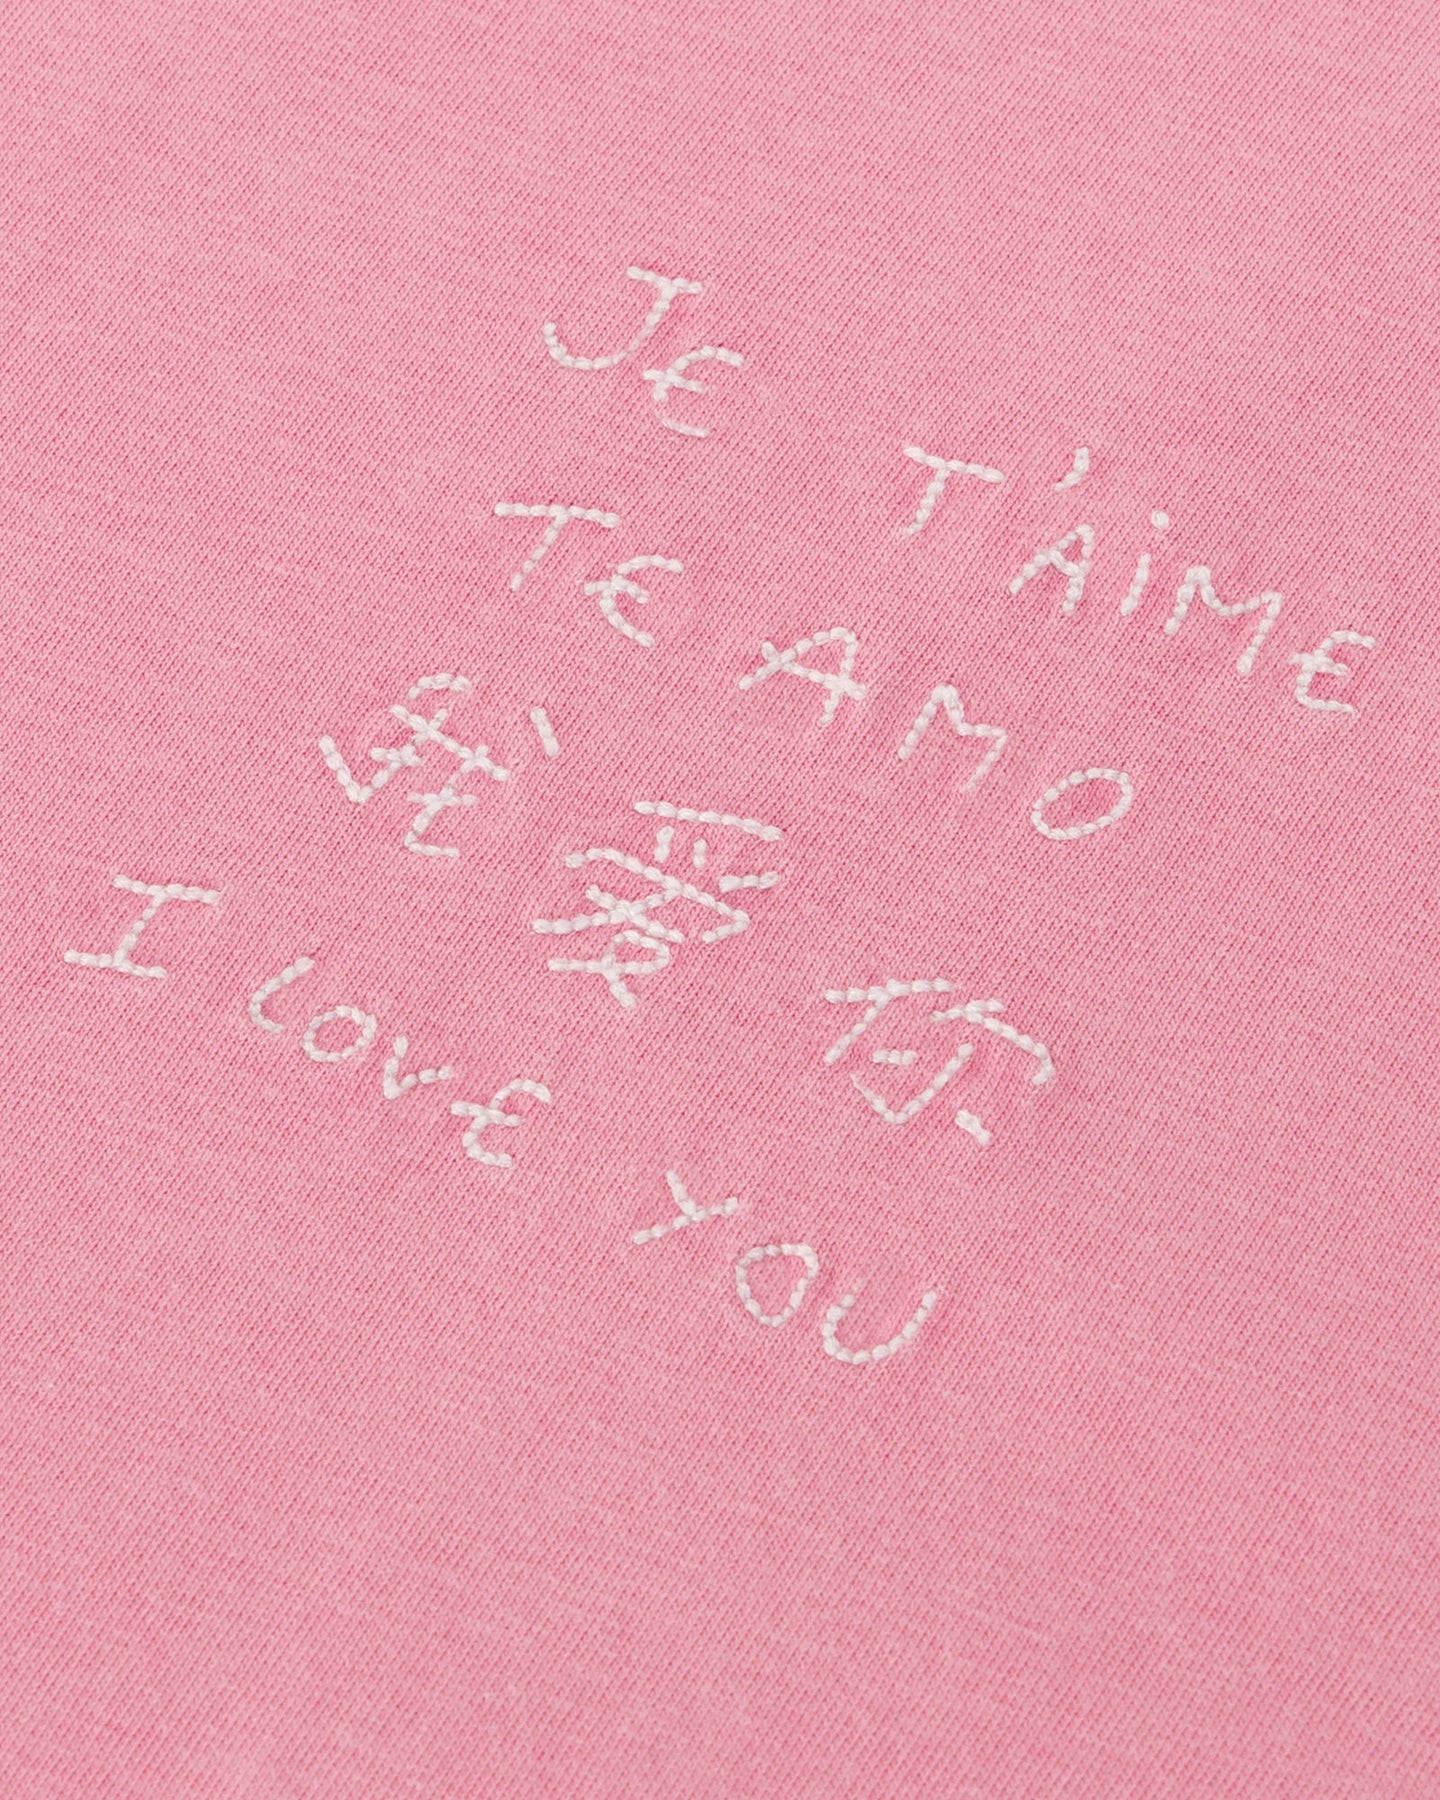 JE T'AIME
TE AMO
我爱你
I LOVE YOU